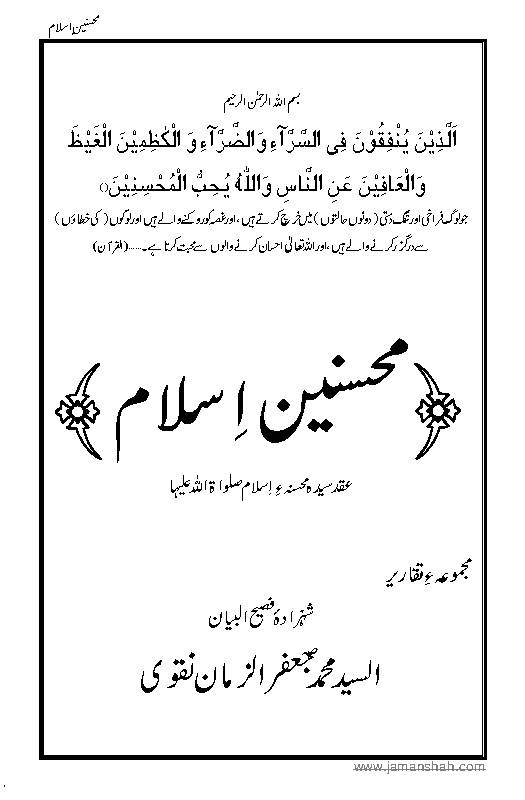 محسنینِ اسلام
بسم اللہ الرحمٰن الرحیم
اَلَّذِیْنَ یُنْفِقُوْنَ فِی السَّرَّآءِ وَالضَّرَّآءِ وَ الْکٰظِمِیْنَ الْغَیْظَ
وَالْعَافِیْنَ عَنِ النَّاسِ وَاللّٰهُ یُحِبُّ الْمُحْسِنِیْنَ()
جو لوگ فراخی اور تنگ دستی (دونوں حالتوں) میں خرچ کرتے ہیں، اور غصہ کو روکنے والے ہیں اور لوگوں (کی خطاؤں)
سے درگزر کرنے والے ہیں، اور اللہ تعالیٰ احسان کرنے والوں سے محبت کرتا ہے۔......(القرآن)
محسنین اِسلام
عقد سیدہ محسنہءِ اِسلام صلواۃ اللہ علیہا
مجموعہءِ تقاریر
شہزادۂ فصیح البیان
السید محمد جعفر الزمان نقوی
www.jamanshah.com